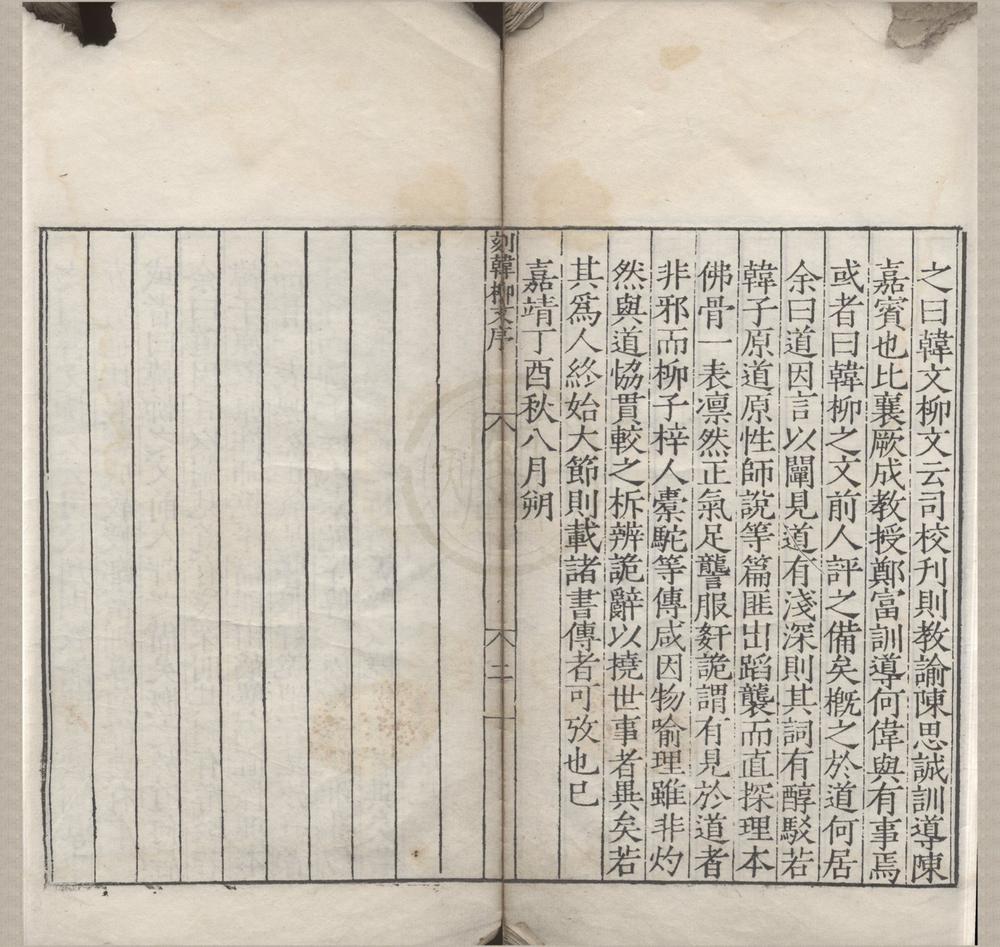 之曰韓文柳文云司校刊則教諭陳思誠訓導陳
嘉賓也比襄厥成教授鄭富訓導何偉與有事焉
或者曰韓柳之文前人評之備矣槪之於道何居
余曰道因言以闡見道有淺深則其詞有醇駁若
韓子原道原性師說等篇匪出蹈襲而直探理本
佛骨一表凛然正氣足讋服姧詭謂有見於道者
非邪而柳子梓人橐駝等傳咸因物喻理雖非灼
然與道恊貫較之析辨詭辭以撓世事者異矣若
其爲人終始大節則載諸書傳者可攷也已
嘉靖丁酉秋八月朔
刻韓柳文序
二